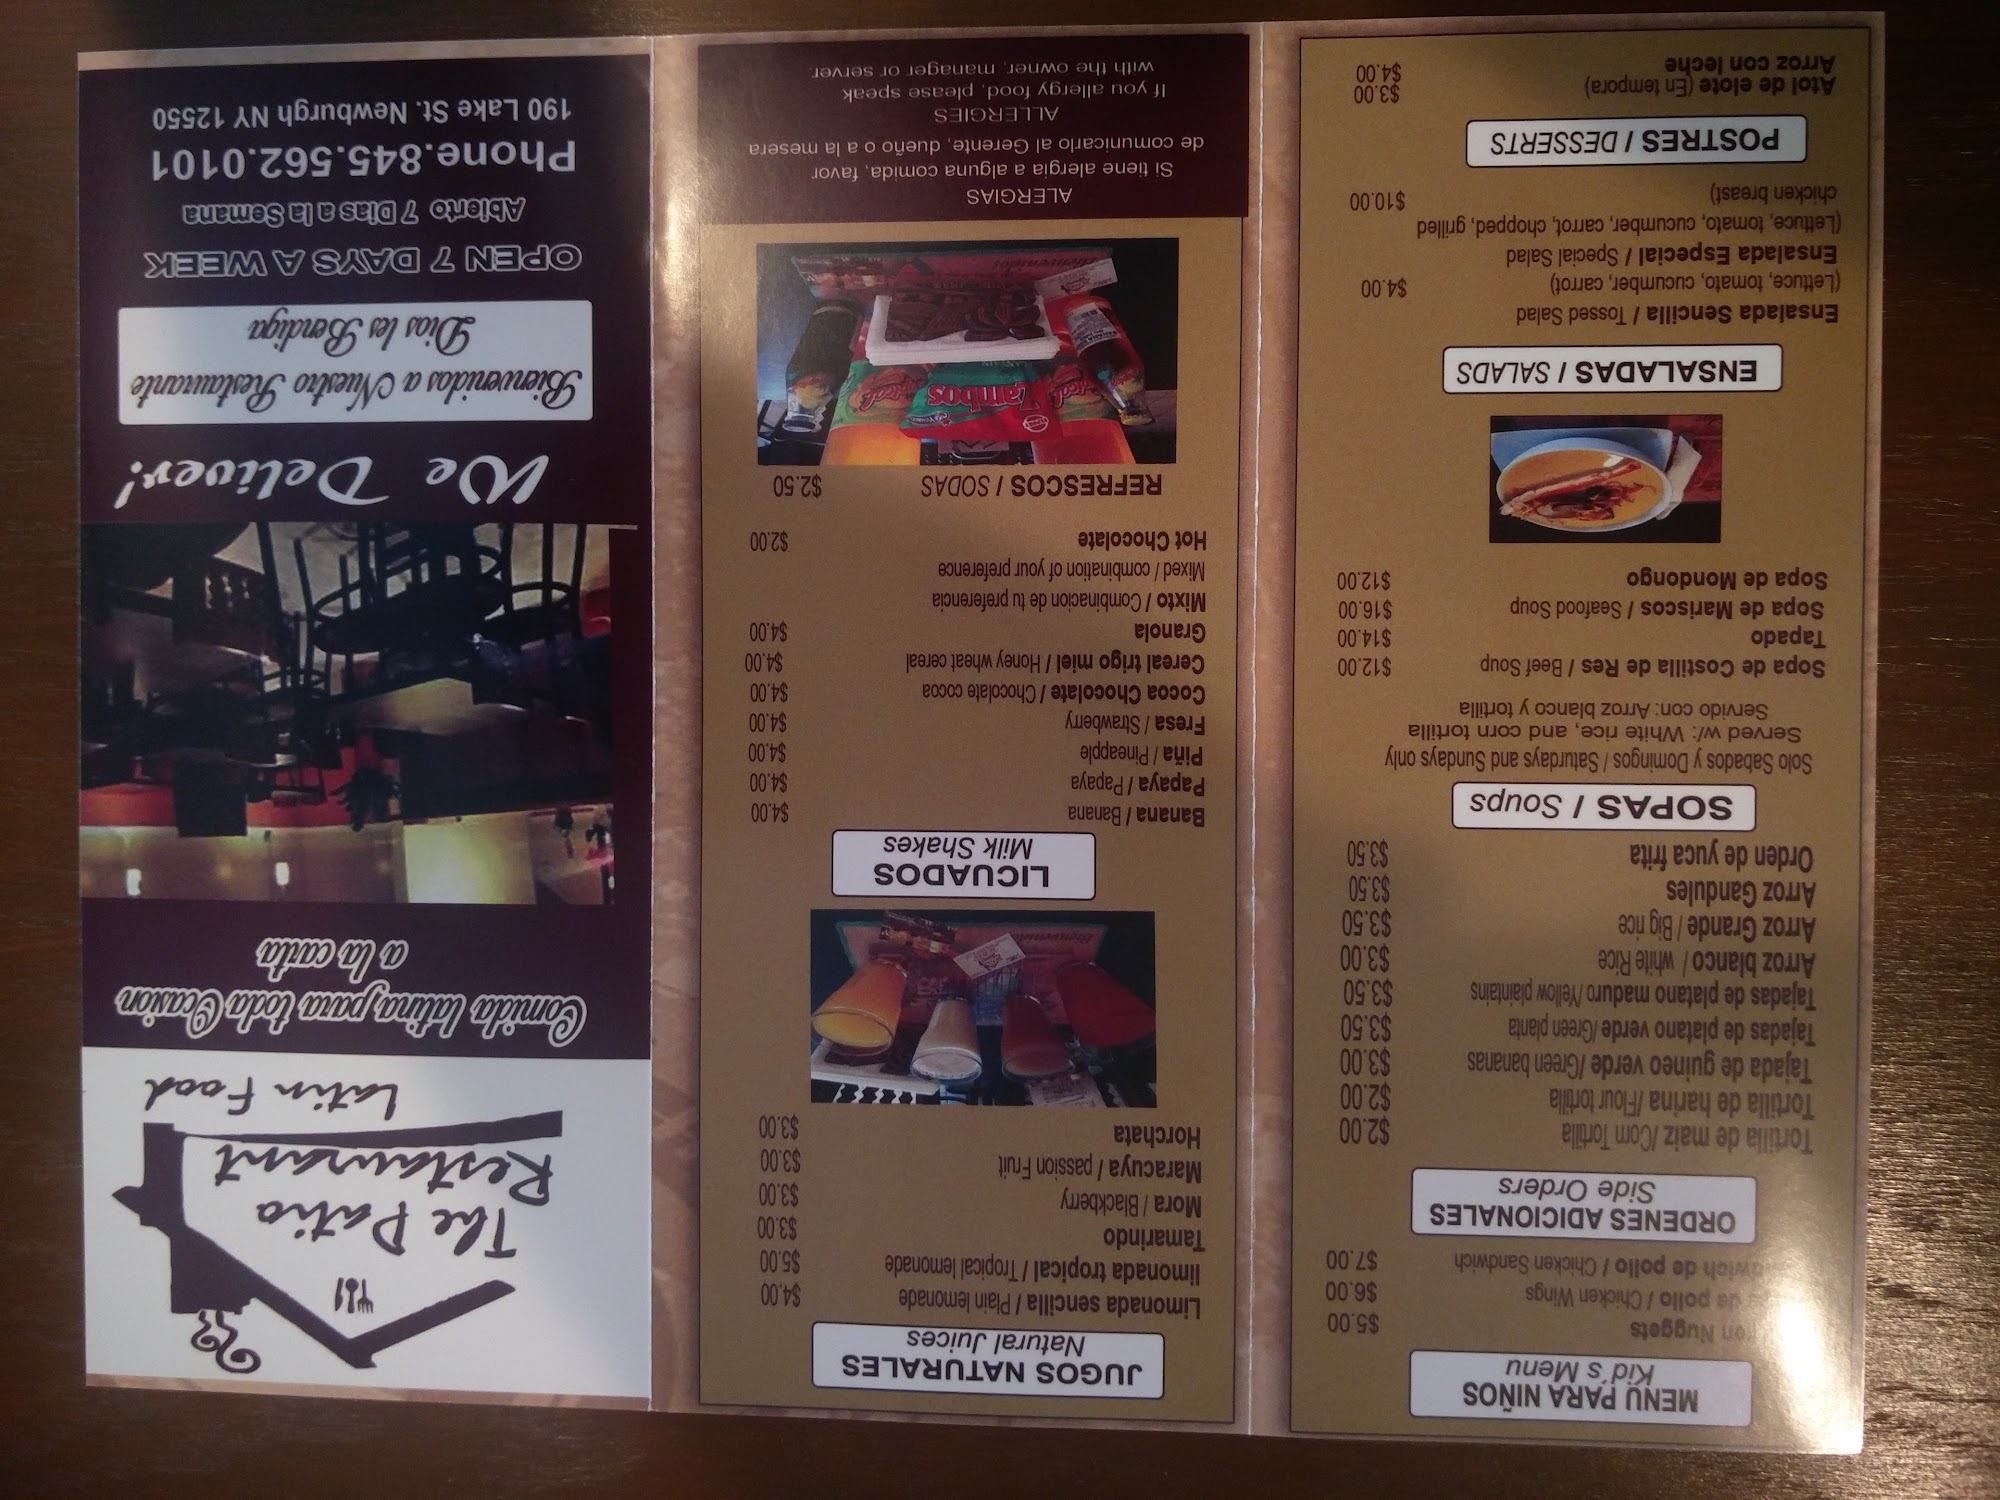 MENU PARA NIÑOS
Kid's Menu
Nuggets $5.00
de pollo / Chicken Wings $6.00
de pollo / Chicken Sandwich $7.00
ORDENES ADICIONALES
Side Orders
Tortilla de maiz/Corn Tortilla $2.00
Tortilla de harina /Flour tortilla $2.00
Tajada de guineo verde /Green bananas $3.00
Tajadas de platano verde /Green planta $3.50
Tajadas de platano maduro /Yellow plaintains $3.50
Arroz blanco / white Rice $3.00
Arroz Grande / Big rice $3.50
Arroz Gandules $3.50
Orden de yuca frita $3.50
SOPAS / Soups
Solo Sabados y Domingos / Saturdays and Sundays only
Served w/: White rice, and corn tortilla
Servido con: Arroz blanco y tortilla
Sopa de Costilla de Res / Beef Soup $12.00
Tapado $14.00
Sopa de Mariscos / Seafood Soup $16.00
Sopa de Mondongo $12.00
ENSALADAS / SALADS
Ensalada Sencilla / Tossed Salad
(Lettuce, tomato, cucumber, carrot) $4.00
Ensalada Especial / Special Salad
(Lettuce, tomato, cucumber, carrot, chopped, grilled
chicken breast) $10.00
POSTRES / DESSERTS
Atol de elote (En tempora) $3.00
Arroz con leche $4.00
JUGOS NATURALES
Natural Juices
Limonada sencilla / Plain lemonade $4.00
limonada tropical / Tropical lemonade $5.00
Tamarindo $3.00
Mora / Blackberry $3.00
Maracuya / passion Fruit $3.00
Horchata $3.00
Bienvenidos
LICUADOS
Milk Shakes
Banana / Banana $4.00
Papaya / Papaya $4.00
Piña / Pineapple $4.00
Fresa / Strawberry $4.00
Cocoa Chocolate / Chocolate cocoa $4.00
Cereal trigo miel / Honey wheat cereal $4.00
Granola $4.00
Mixto / Combinacion de tu preferencia
Mixed / combination of your preference
Hot Chocolate $2.00
REFRESCOS / SODAS $2.50
Zambos
Bienvenidos
ALERGIAS
Si tiene alergia a alguna comida, favor
de comunicarlo al Gerente, dueño o a la mesera
ALLERGIES
If you allergy food, please speak
with the owner, manager or server.
The Patio
Restaurant
Latin Food
Comida latina para toda Ocasion
a la carta
We Deliver!
Bienvenidos a Nuestro Restaurante
Dios les Bendiga
OPEN 7 DAYS A WEEK
Abierto 7 Dias a la Semana
Phone.845.562.0101
190 Lake St. Newburgh NY 12550